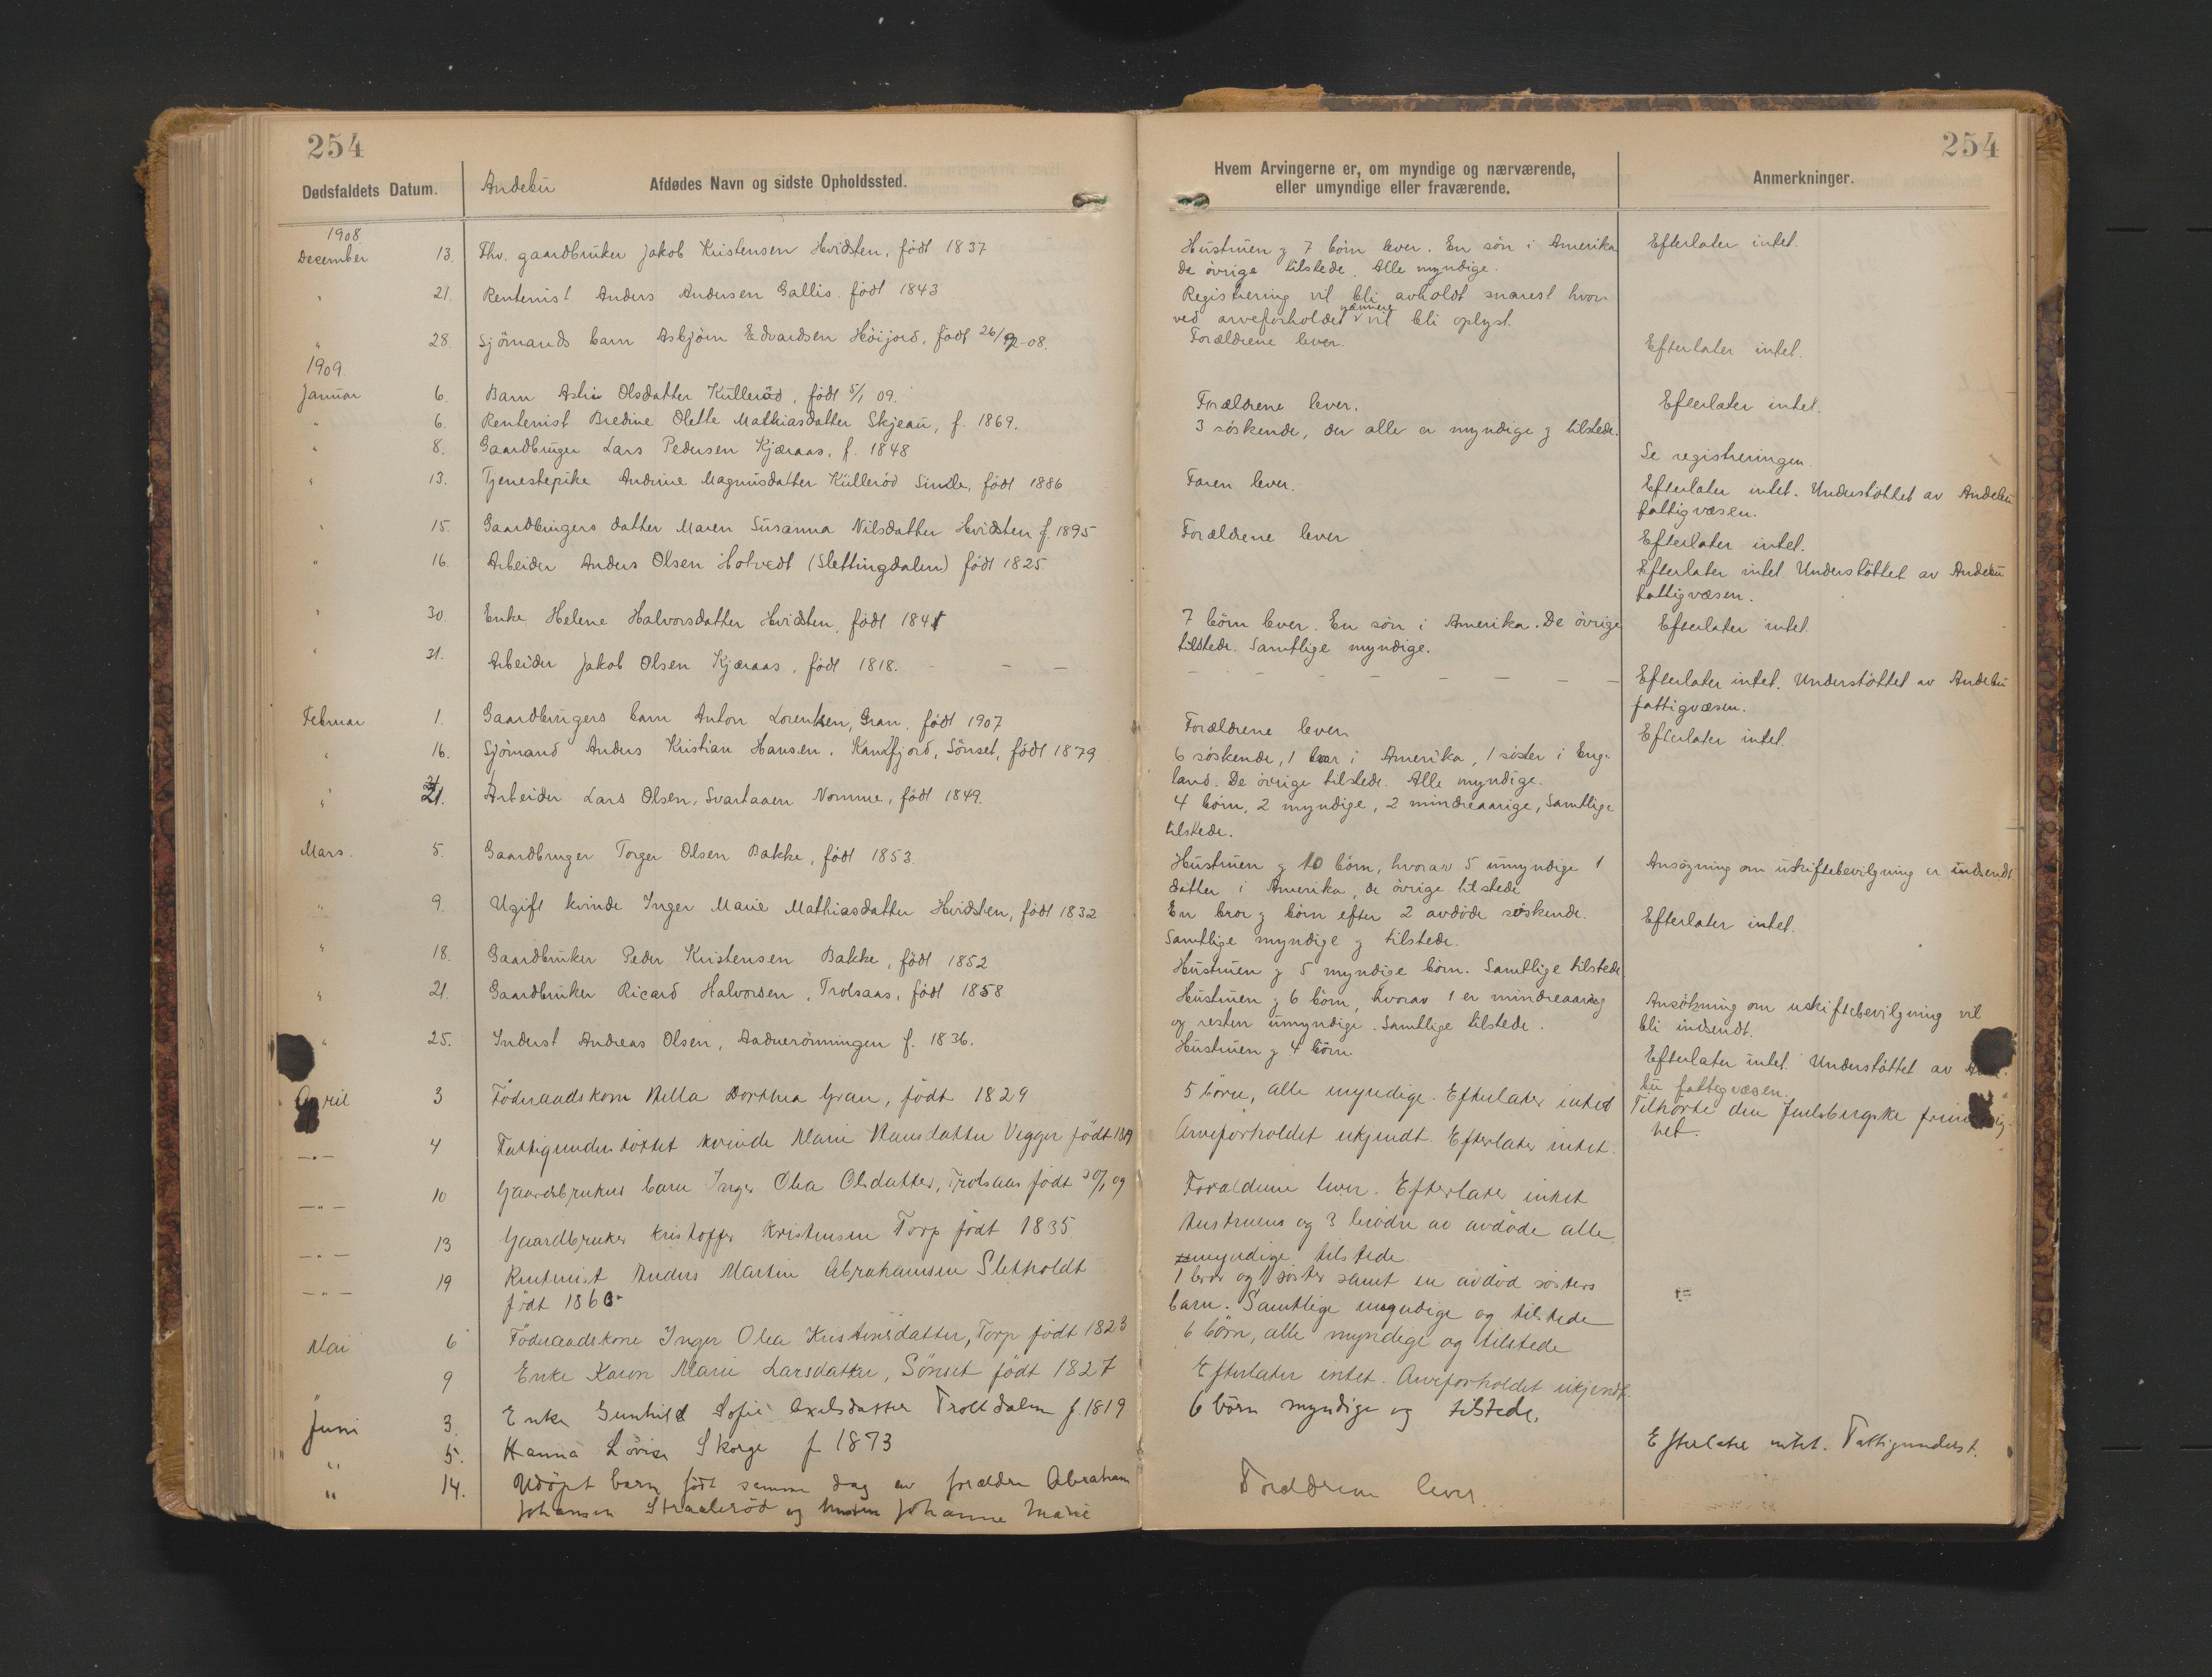 254
254
Dødsfaldets Datum.
Andebu
Afdødes Navn og sidste Opholdssted.
Hvem Arvingerne er, om myndige og nærværende,
eller umyndige eller fraværende.
Anmerkninger.
1908
December 13. Fhv. gaardbruker Jakob Kristensen Hvidsten, født 1837
Hustruen g 7 børn lever. En søn i Amerika
De øvrige tilstede. Alle myndige.
Efterlater intet.
" 21. Rentenist Anders Andersen Gallis født 1843
Registrering vil bli avholdt snarest hvor
ved arveforholdet nærmere vil bli oplyst.
" 28. Sjömands barn Asbjørn Edvardsen Høijord, født 26/12-08.
Forældrene lever.
Efterlater intet.
1909.
Januar 6. Barn Olsdatter Kullerød, født 5/1 09.
Forældrene lever.
Efterlater intet.
" 6. Rentenist Bredine Olette Mathiasdatter Skjeau, f. 1869.
3 søskende, der alle er myndige g tilstede.
" 8. Gaardbruger Lars Pedersen Kjæraas, f. 1848
Se registreringen.
" 13. Tjenestepike Andrine Magnusdatter Küllerød Sinde, født 1886
Faren lever.
Efterlater intet. Understøttet av Andebu
fattigvæsen.
" 15. Gaardbrugers datter Maren Susanna Nilsdatter Hvidsten f. 1895
Forældrene lever
Efterlater intet.
" 16. Arbeider Anders Olsen Holvedt (Slettingdalen) født 1825
Efterlater intet Understøttet av Andebu
fattigvæsen.
" 30. Enke Helene Halvorsdatter Hvidsten, født 1841
7 børn lever. En søn i Amerika. De øvrige
tilstede. Samtlige myndige.
Efterlater intet.
" 31. Arbeider Jakob Olsen Kjæraas, født 1818. - - -
- - - - - - - -
Efterlater intet. Understøttet av Andebu
fattigvæsen.
Februar 1. Gaardbrugers barn Anton Lorentsen, Gran, født 1907
Forældrene lever
Efterlater intet.
" 16. Sjömand Anders Kristian Hansen, Kamfjord, Sönset, født 1879
6 søskende, 1 bror i Amerika, 1 søster i Eng-
land. De øvrige tilstede. Alle myndige.
" 21. Arbeider Lars Olsen, Svartaaen Nomme, født 1849.
4 børn, 2 myndige, 2 mindreaarige, Samtlige
tilstede.
Mars. 5. Gaardbruger Torger Olsen Bakke, født 1853.
Hustruen g 10 børn, hvorav 5 umyndige 1
datter i Amerika, de øvrige tilstede
Ansøgning om uskiftebevilgning er indsendt.
" 9. Ugift kvinde Inger Marie Mathiasdatter Hvidsten, født 1832
En bror g børn efter 2 avdøde søskende.
Samtlige myndige g tilstede.
Efterlater intet.
" 18. Gaardbruker Peder Kristensen Bakke, født 1852
Hustruen g 5 myndige børn. Samtlige tilstede
" 21. Gaardbruker Ricard Halvorsen, Trolsaas, født 1858
Hustruen g 6 børn, hvorav 1 er mindreaarig
og resten umyndige. Samtlige tilstede.
Ansøkning om uskiftebevilgning vil
bli indsendt.
" 25. Inderst Andreas Olsen, Aadnerönningen f. 1836.
Hustruen g 4 børn
Efterlater intet. Understøttet av
bu fattigvæsen.
April 3 Föderaadskone Mella Dorthea Gran, født 1829
5 börn, alle myndige. Efterlater intet
Tilhørte den Jarlsbergske
het.
-"- 4 Fattigunderstöttet kvinde Marie Hansdatter Vegger født
Arveforholdet ukjendt. Efterlater intet.
-"- 10 Gaardbrukers barn Inger Olea Olsdatter, Trolsaas født 30/1 09
Forældrene lever. Efterlater intet
-"- 13 Gaardbruker Kristoffer Kristensen Torp født 1835
Hustruens og 3 brödre av avdöde alle
myndige tilstede.
-"- 19 Rentenist Anders Martin Abrahamsen Sletholdt
født 1860
1 bror og 1 söster samt en avdöd sösters
barn. Samtlige myndige og tilstede
Mai 6 Föderaadskone Inger Olea Kristensdatter, Torp født 1823
6 börn, alle myndige og tilstede
" 9 Enke Karen Marie Larsdatter, Sönset födt 1827
Efterlater intet. Arveforholdet ukjendt.
Juni 3. Enke Gunhild Sofie Axelsdatter Trolldalen f. 1819
6 börn myndige og tilstede.
" 5. Hanna Lovise Skorge f 1873
Efterlater intet. Fattigunderst.
" 14. Udöpt barn født samme dag av forældre Abraham
Johansen Straaleröd og hustru Johanne Marie
Forældrene lever.